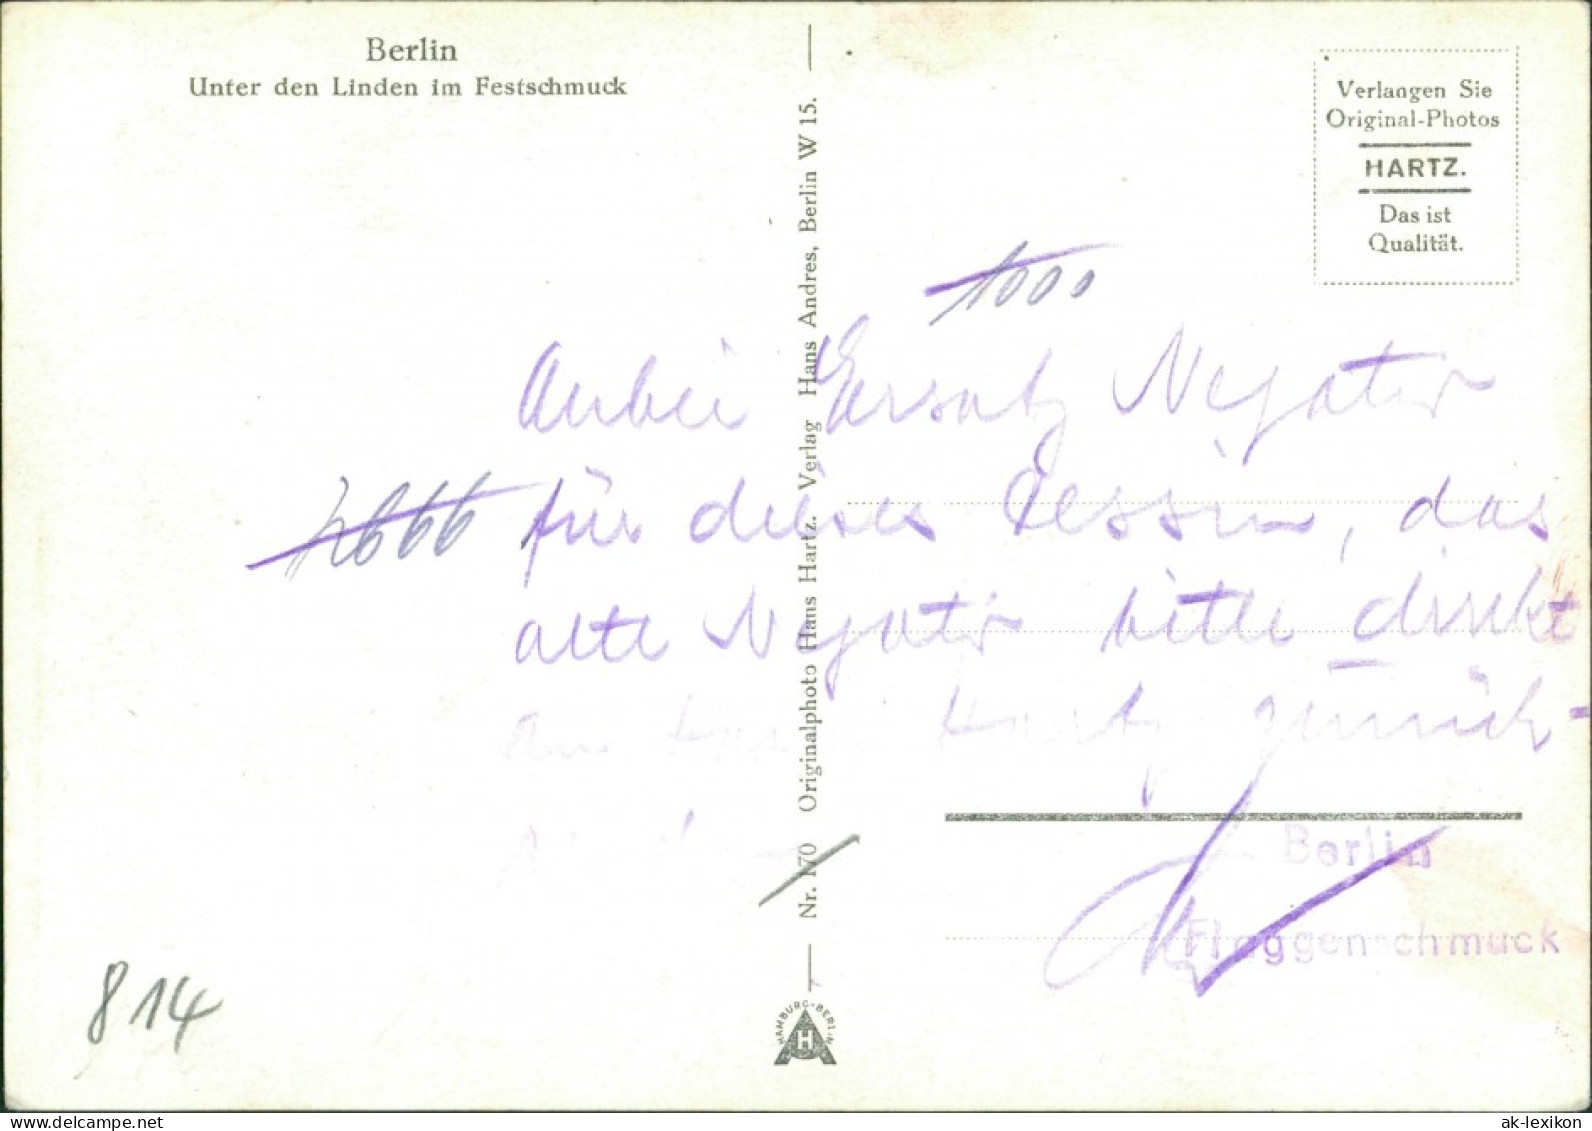 Berlin
Unter den Linden im Festschmuck
Verlangen Sie
Original-Photos
HARTZ.
Das ist
Qualität.
Nr. 170 Originalphoto Hans Hartz. Verlag Hans Andres, Berlin W 15.
1000
Anbei Ersatz Negativ
für dieses Dessin, das
alte Negativ bitte direkt
an Hartz zurück-
Berlin
Flaggenschmuck
814
HAMBURG-BERLIN
AH
ak-lexikon